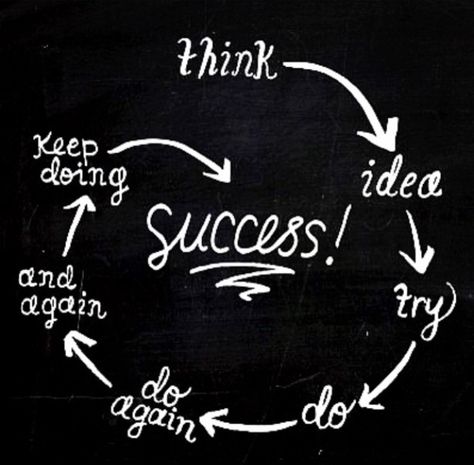 think
idea
try
do
do
again
and
again
Keep
doing
success!